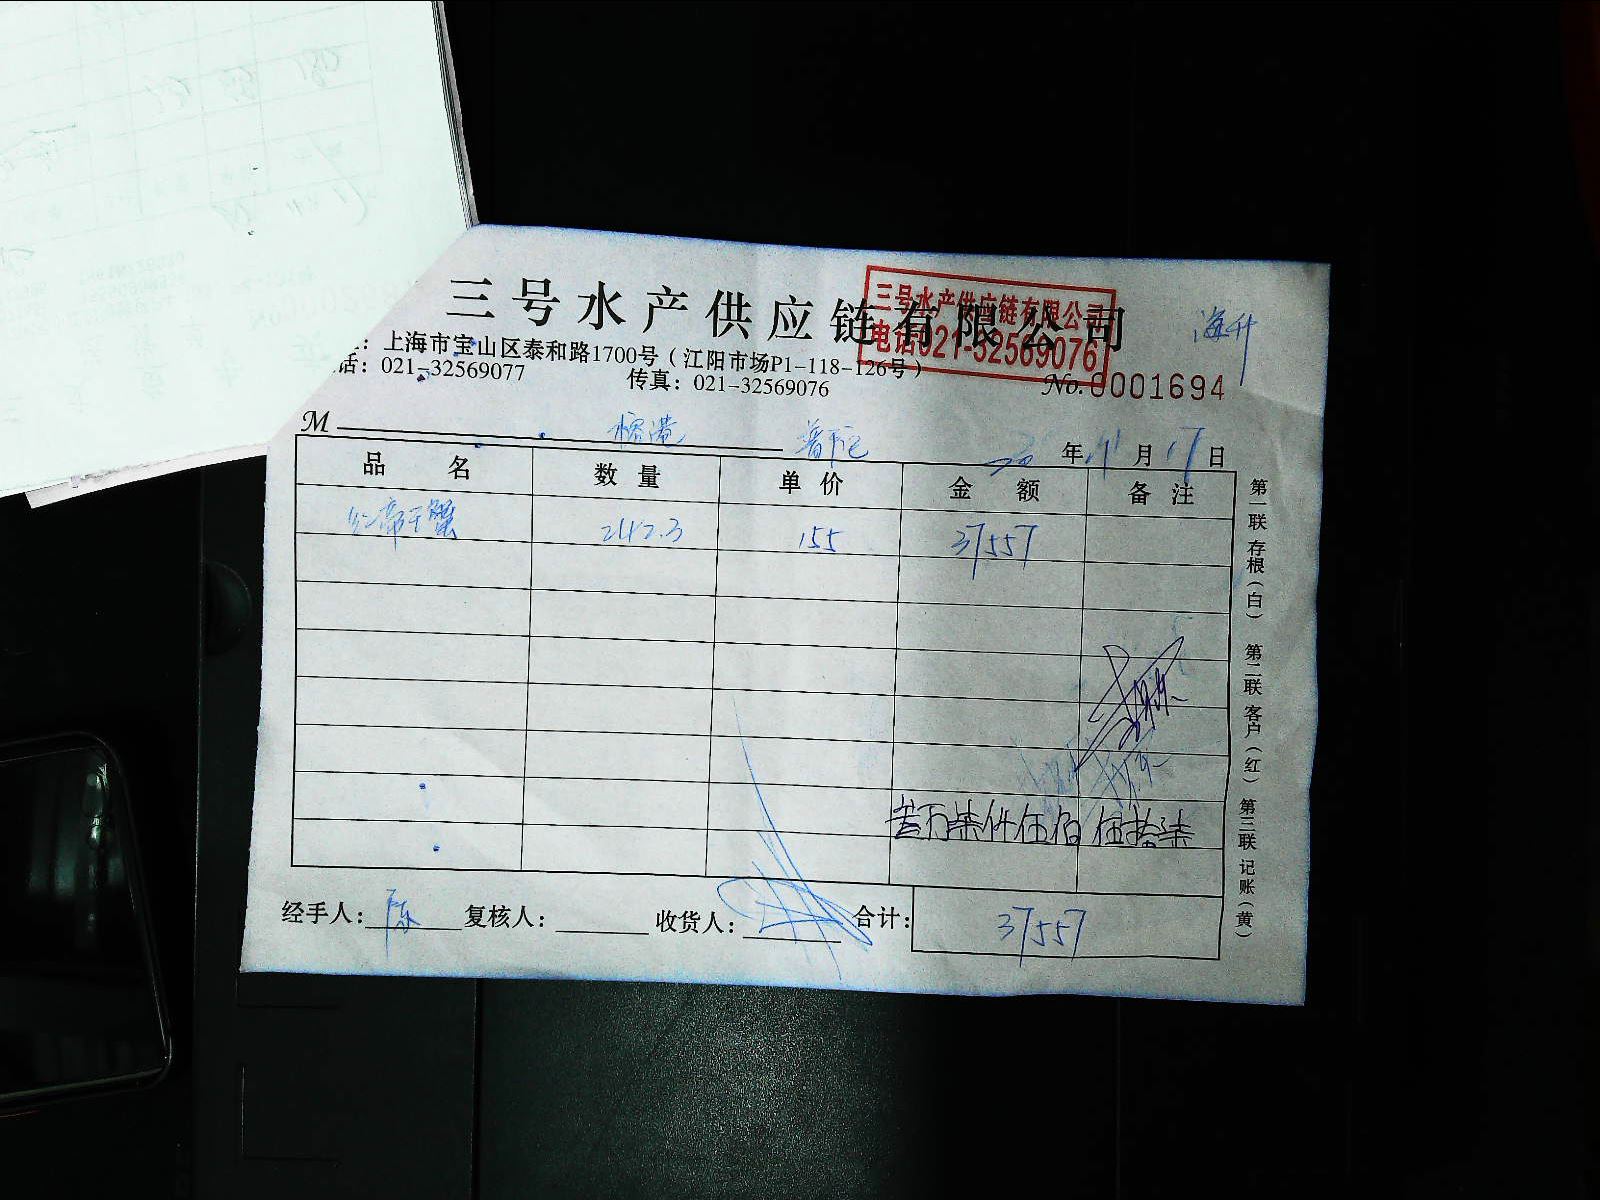 三号水产供应链有限公司
三号水产供应链有限公司
电话021-32569076
海升
上海市宝山区泰和路1700号（江阳市场P1-118-126号）
话：021-32569077 传真：021-32569076
No. 0001694
M 榕港 普陀 年 11 月 17 日
品 名 数 量 单 价 金 额 备 注
红帝王蟹 242.3 155 37557
叁万柒仟伍佰伍拾柒
经手人：陈 复核人： 收货人： 合计：37557
第一联 存根（白） 第二联 客户（红） 第三联 记账（黄）